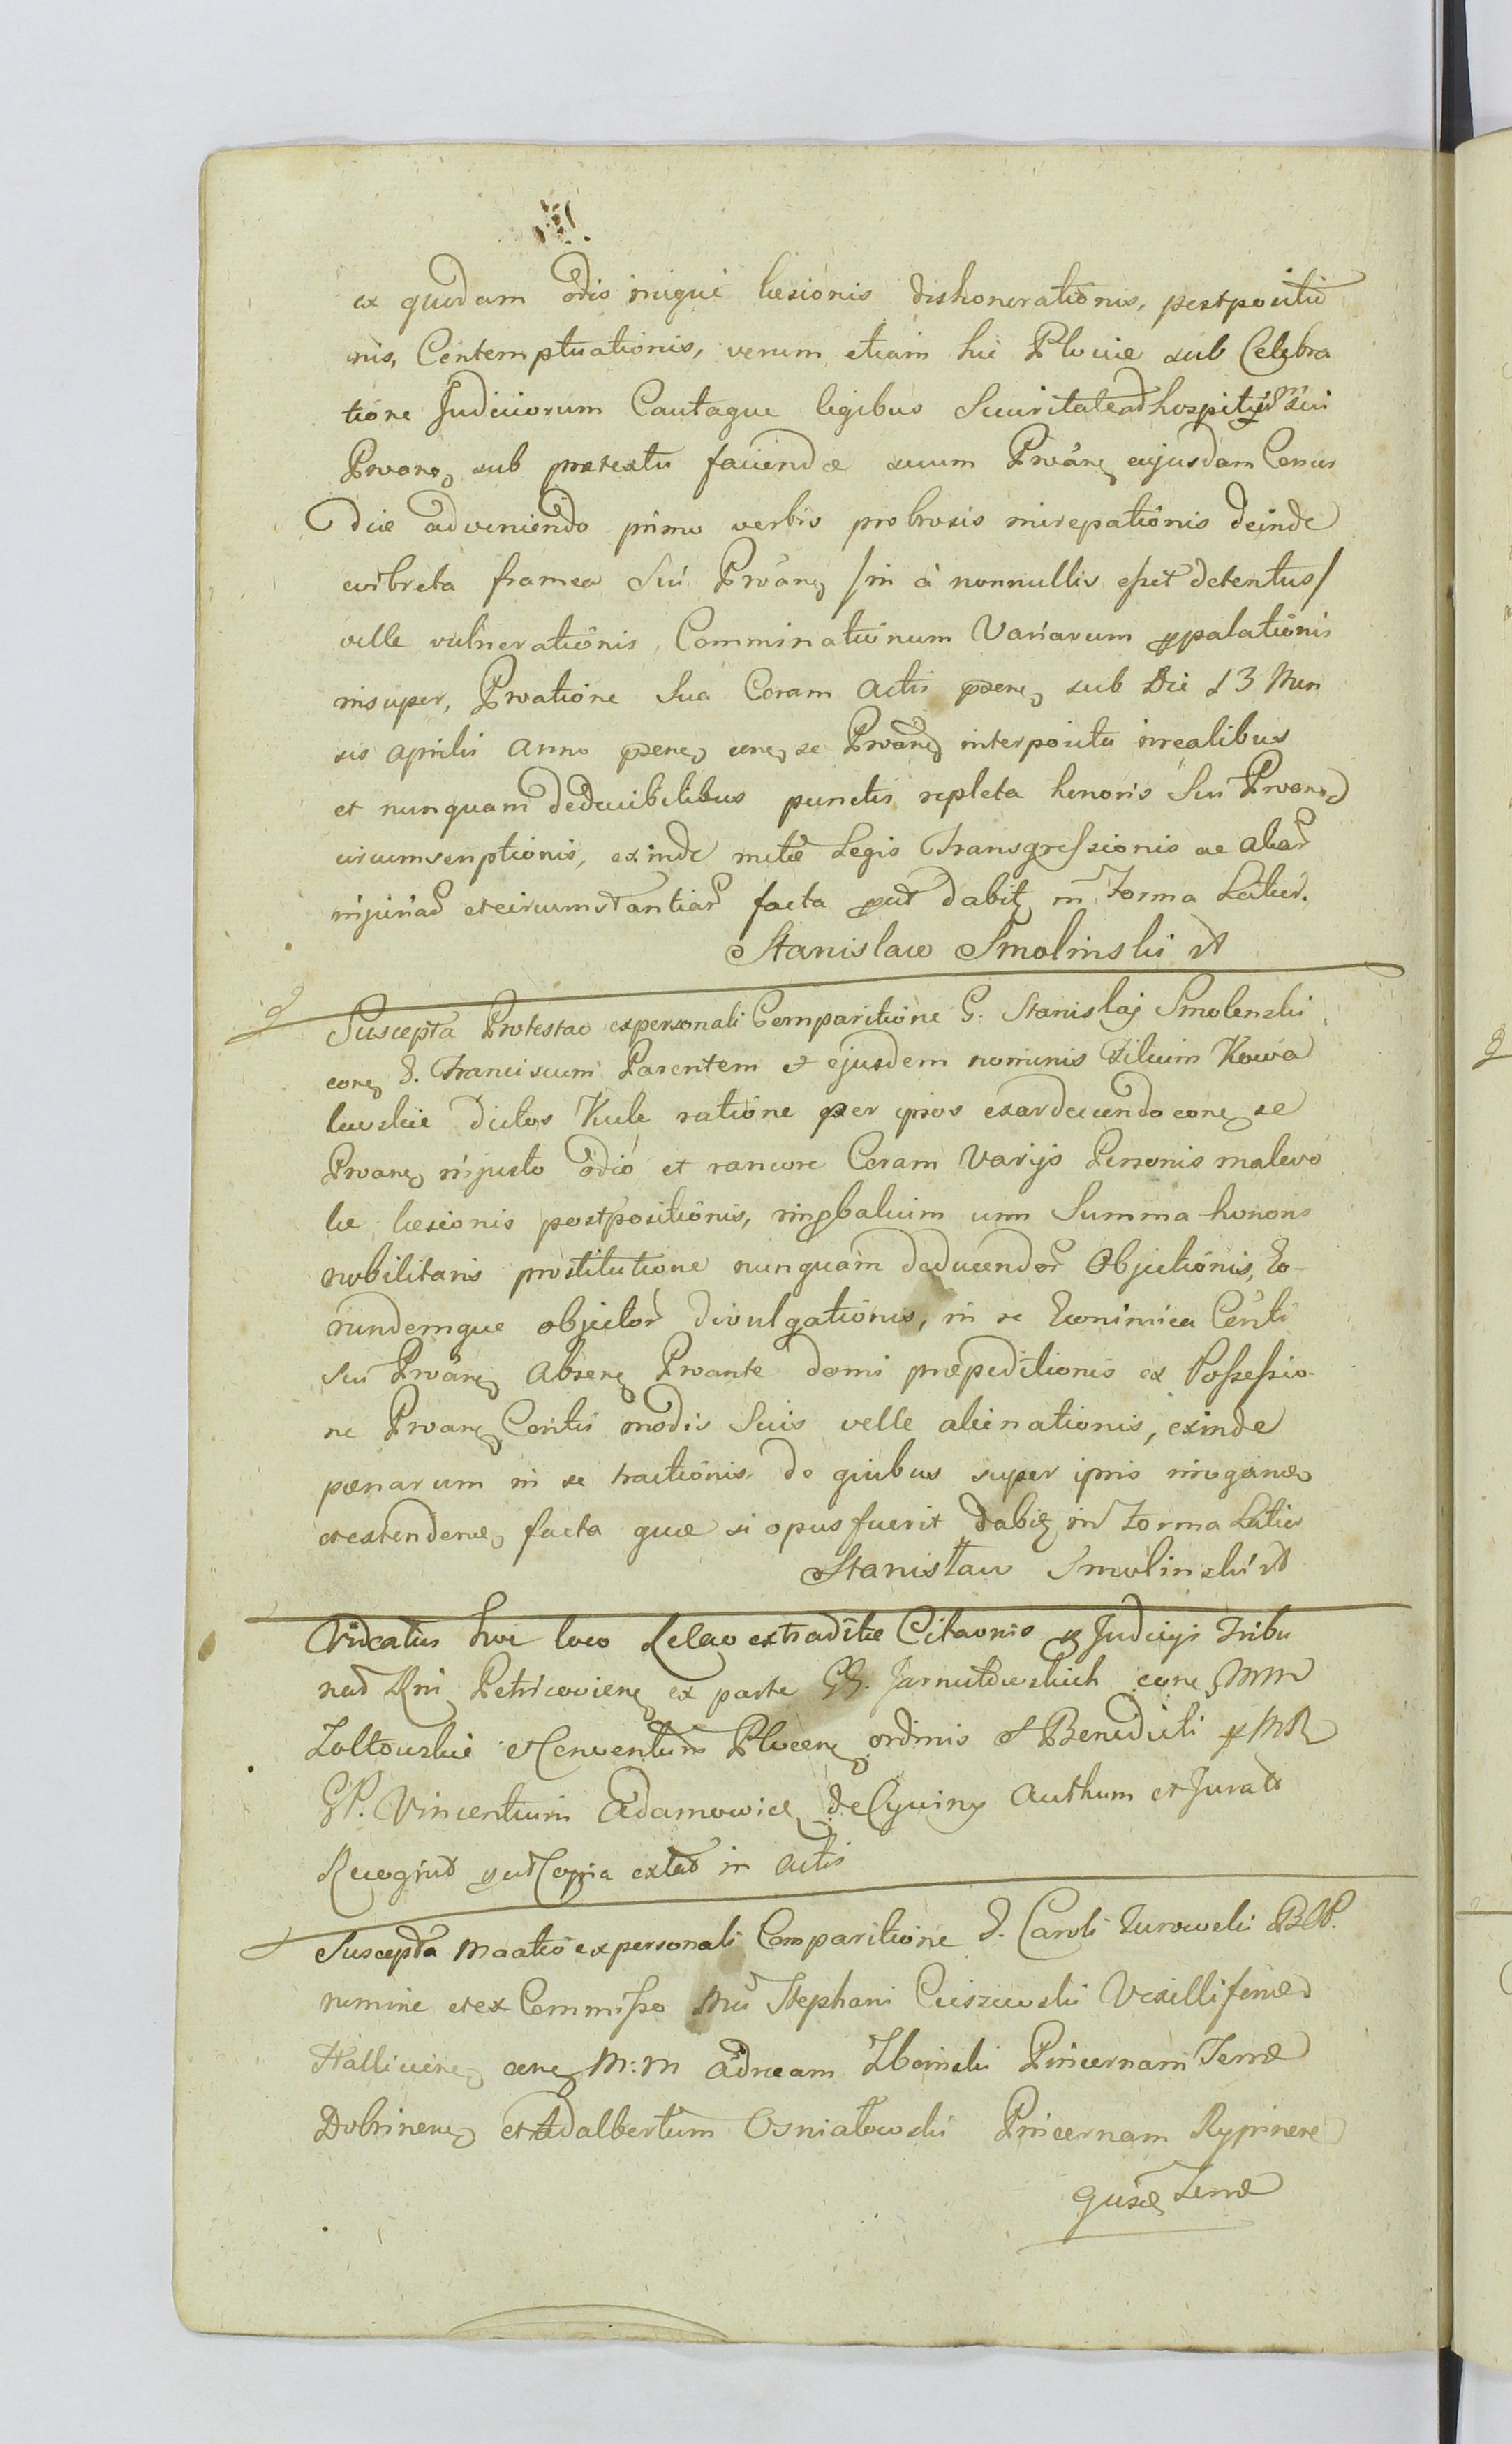 ex quodam odio iniqui læsionis dishonorationis, postpositio
nis, Contemptuationis, verum etiam hic Plociæ sub Celebra
tione Judiciorum Cautaque legibus Securitate ad hospitium sui
Proane sub prætextu faciendæ suum Proane cujusdam Concor
diæ adveniendo primo verbis probrosis increpationis deinde
evibrata framea Sui Proane /ni à nonnullis esset detentus/
velle vulnerationis, Comminationum Variarum propalationis
insuper, Proatione Sua Coram Actis præsene sub Die 13 Men
sis Aprilis Anno præsene cone se Proane interposita irrealibus
et nunquam deducibilibus punctis repleta honoris Sui Proane
circumscriptionis, exinde metæ Legis Transgressionis ac aliar
injuriar et circumstantiar facta prout dabit in Forma Latior.
Stanislaw Smolinski
Suscepta Protestao ex personali Comparitione G. Stanislaj Smolenski
cone G. Franciscum Parentem et ejusdem nominis Filium Kowa
lewskie dictos Kule ratione per ipsos exardescendo cone se
Proane injusto odio et rancore Coram Varijs Personis malevo
læ læsionis postpositionis, verbalium cum Summa honoris
nobilitaris prostitutione nunquam deducendor Objectionis, Eo-
rundemque objector divulgationis, in re Economica Centi
sui Proane absene Proante domi præpeditionis ex Possessio-
ne Proane Centi modis Suis velle alienationis, exinde
pœnarum in se tractionis de quibus super ipsis irrogane
et extendene facta quæ si opus fuerit dabit in Forma Latior
Stanisław Smolinski
Videatur hoc loco Relao extraditæ Citaonis ex Judicijs Tribu
nal Rni Petricoviene ex parte GG. Jarnutowskich cone MM
Zoltowskie et Conventum Plocene ordinis S Benedicti per MR
GP. Vincentium Adamowicz de Cywiny Authum et Jurat
Recognit prout Copia extat in Actis
Suscepta Maatio ex personali Comparitione G. Caroli Zurowski BP.
nomine et ex Commisso Mci Stephani Cieszewski Vexilliferi
Halliciene cone M:M Adream Zboinski Pincernam Terræ
Dobrinene et Adalbertum Osniałowski Pincernam Rypinene
qusdæ Terræ